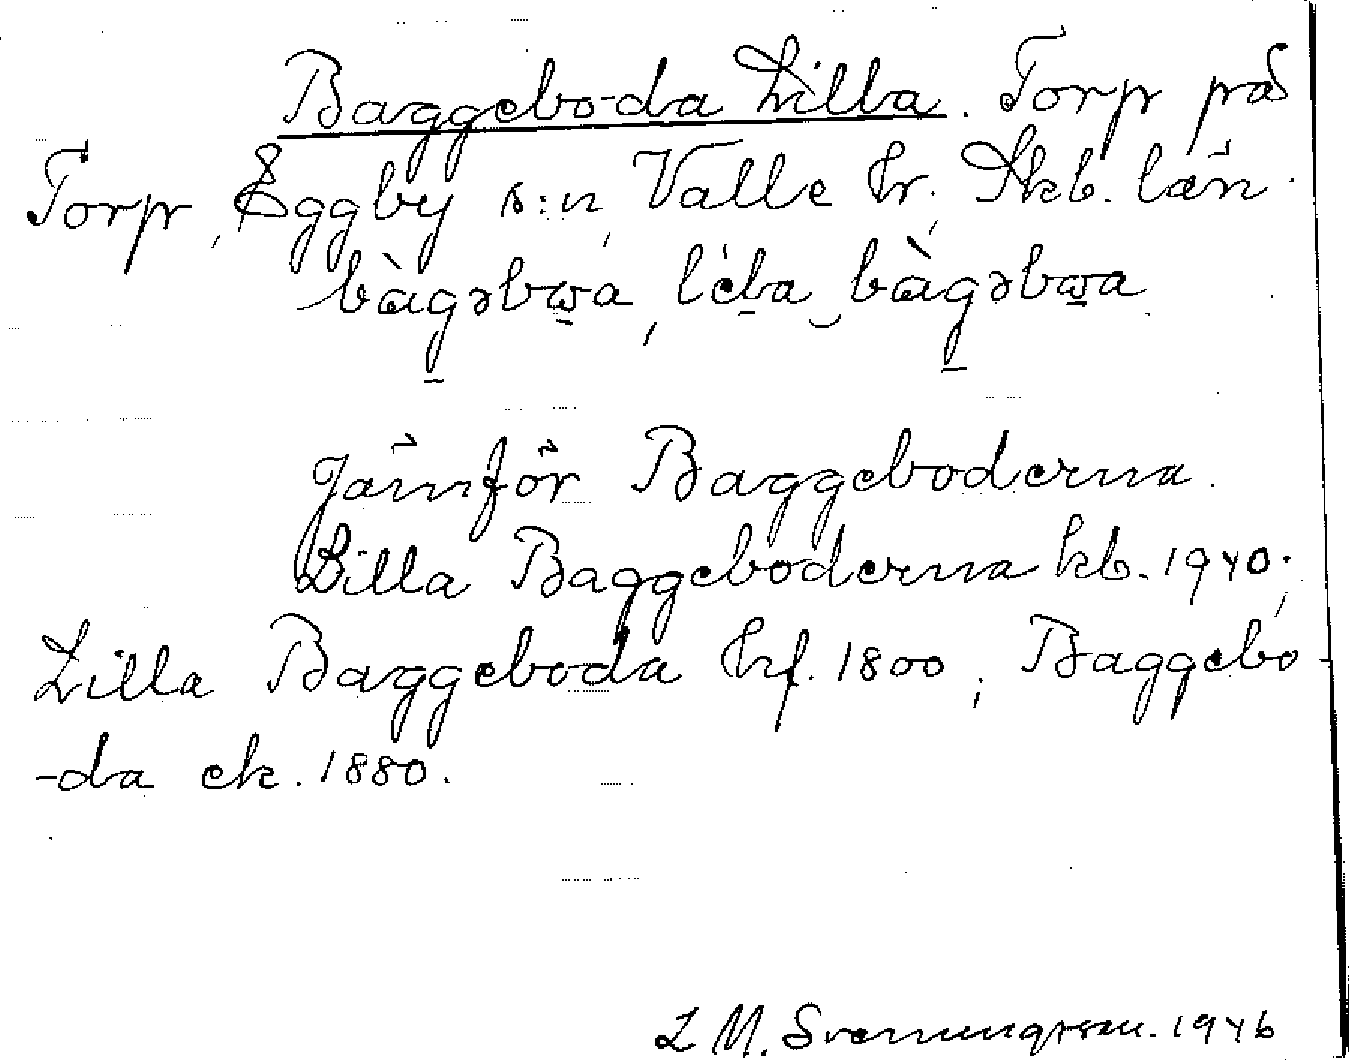 Baggeboda Lilla. Torp på
Torp, Eggby s:n, Valle hr, Skb. län.
bàgəbɯa, lèba bàgəbɯa
Jämför Baggeboderna.
Lilla Baggeboderna kb. 1940;
Lilla Baggeboda hrf. 1800, Baggebo-
-da ek. 1880.
L M. Svenungsson. 1946